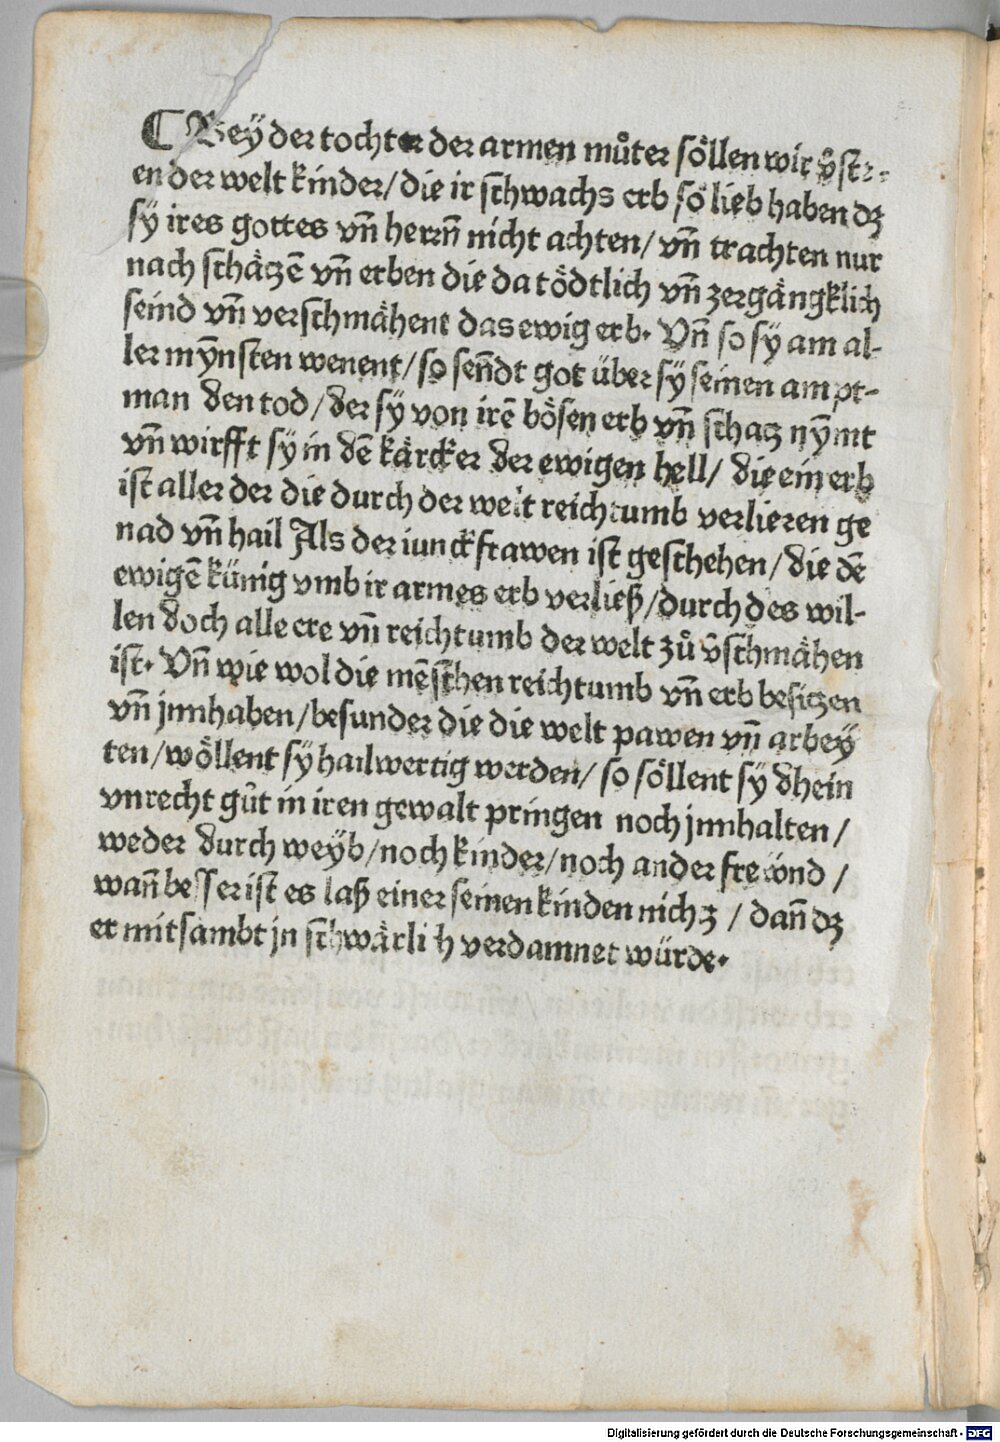 ¶ Bey der tochter der armen můter söllen wir v̄ste-
en der welt kinder/die ir schwachs erb so lieb haben dz
sÿ ires gottes vn̄ herrn̄ nicht achten/ vn̄ trachten nur
nach schätzē vn̄ erben die da tödtlich vn̄ zergängklich
seind vn̄ verschmähent das ewig erb. Vn̄ so sÿ am al-
ler mÿnsten wenent/so sen̄dt got über sÿ seinen ampt-
man den tod/der sÿ von irē bösen erb vn̄ schatz nÿmt
vn̄ wirfft sÿ in dē kärcker der ewigen hell/ die ein erb
ist aller der die durch der welt reichtumb verlieren ge
nad vn̄ hail Als der iunckfrawen ist geschehen/die dē
ewigē künig vmb ir armes erb verließ/durch des wil-
len doch alle ere vn̄ reichtumb der welt zů v̄schmähen
ist. Vn̄ wie wol die mēschen reichtumb vn̄ erb besitzen
vn̄ jnnhaben/besunder die die welt pawen vn̄ arbeÿ
ten/wöllent sÿ hailwertig werden/ so söllent sÿ dhein
vnrecht gůt in iren gewalt pringen noch jnnhalten/
weder durch weÿb/noch kinder/noch ander freünd/
wan̄ besser ist es laß einer seinen kinden nichz/ dan̄ dz
er mitsambt jn schwärlich verdamnet würde.
Digitalisierung gefördert durch die Deutsche Forschungsgemeinschaft - DFG